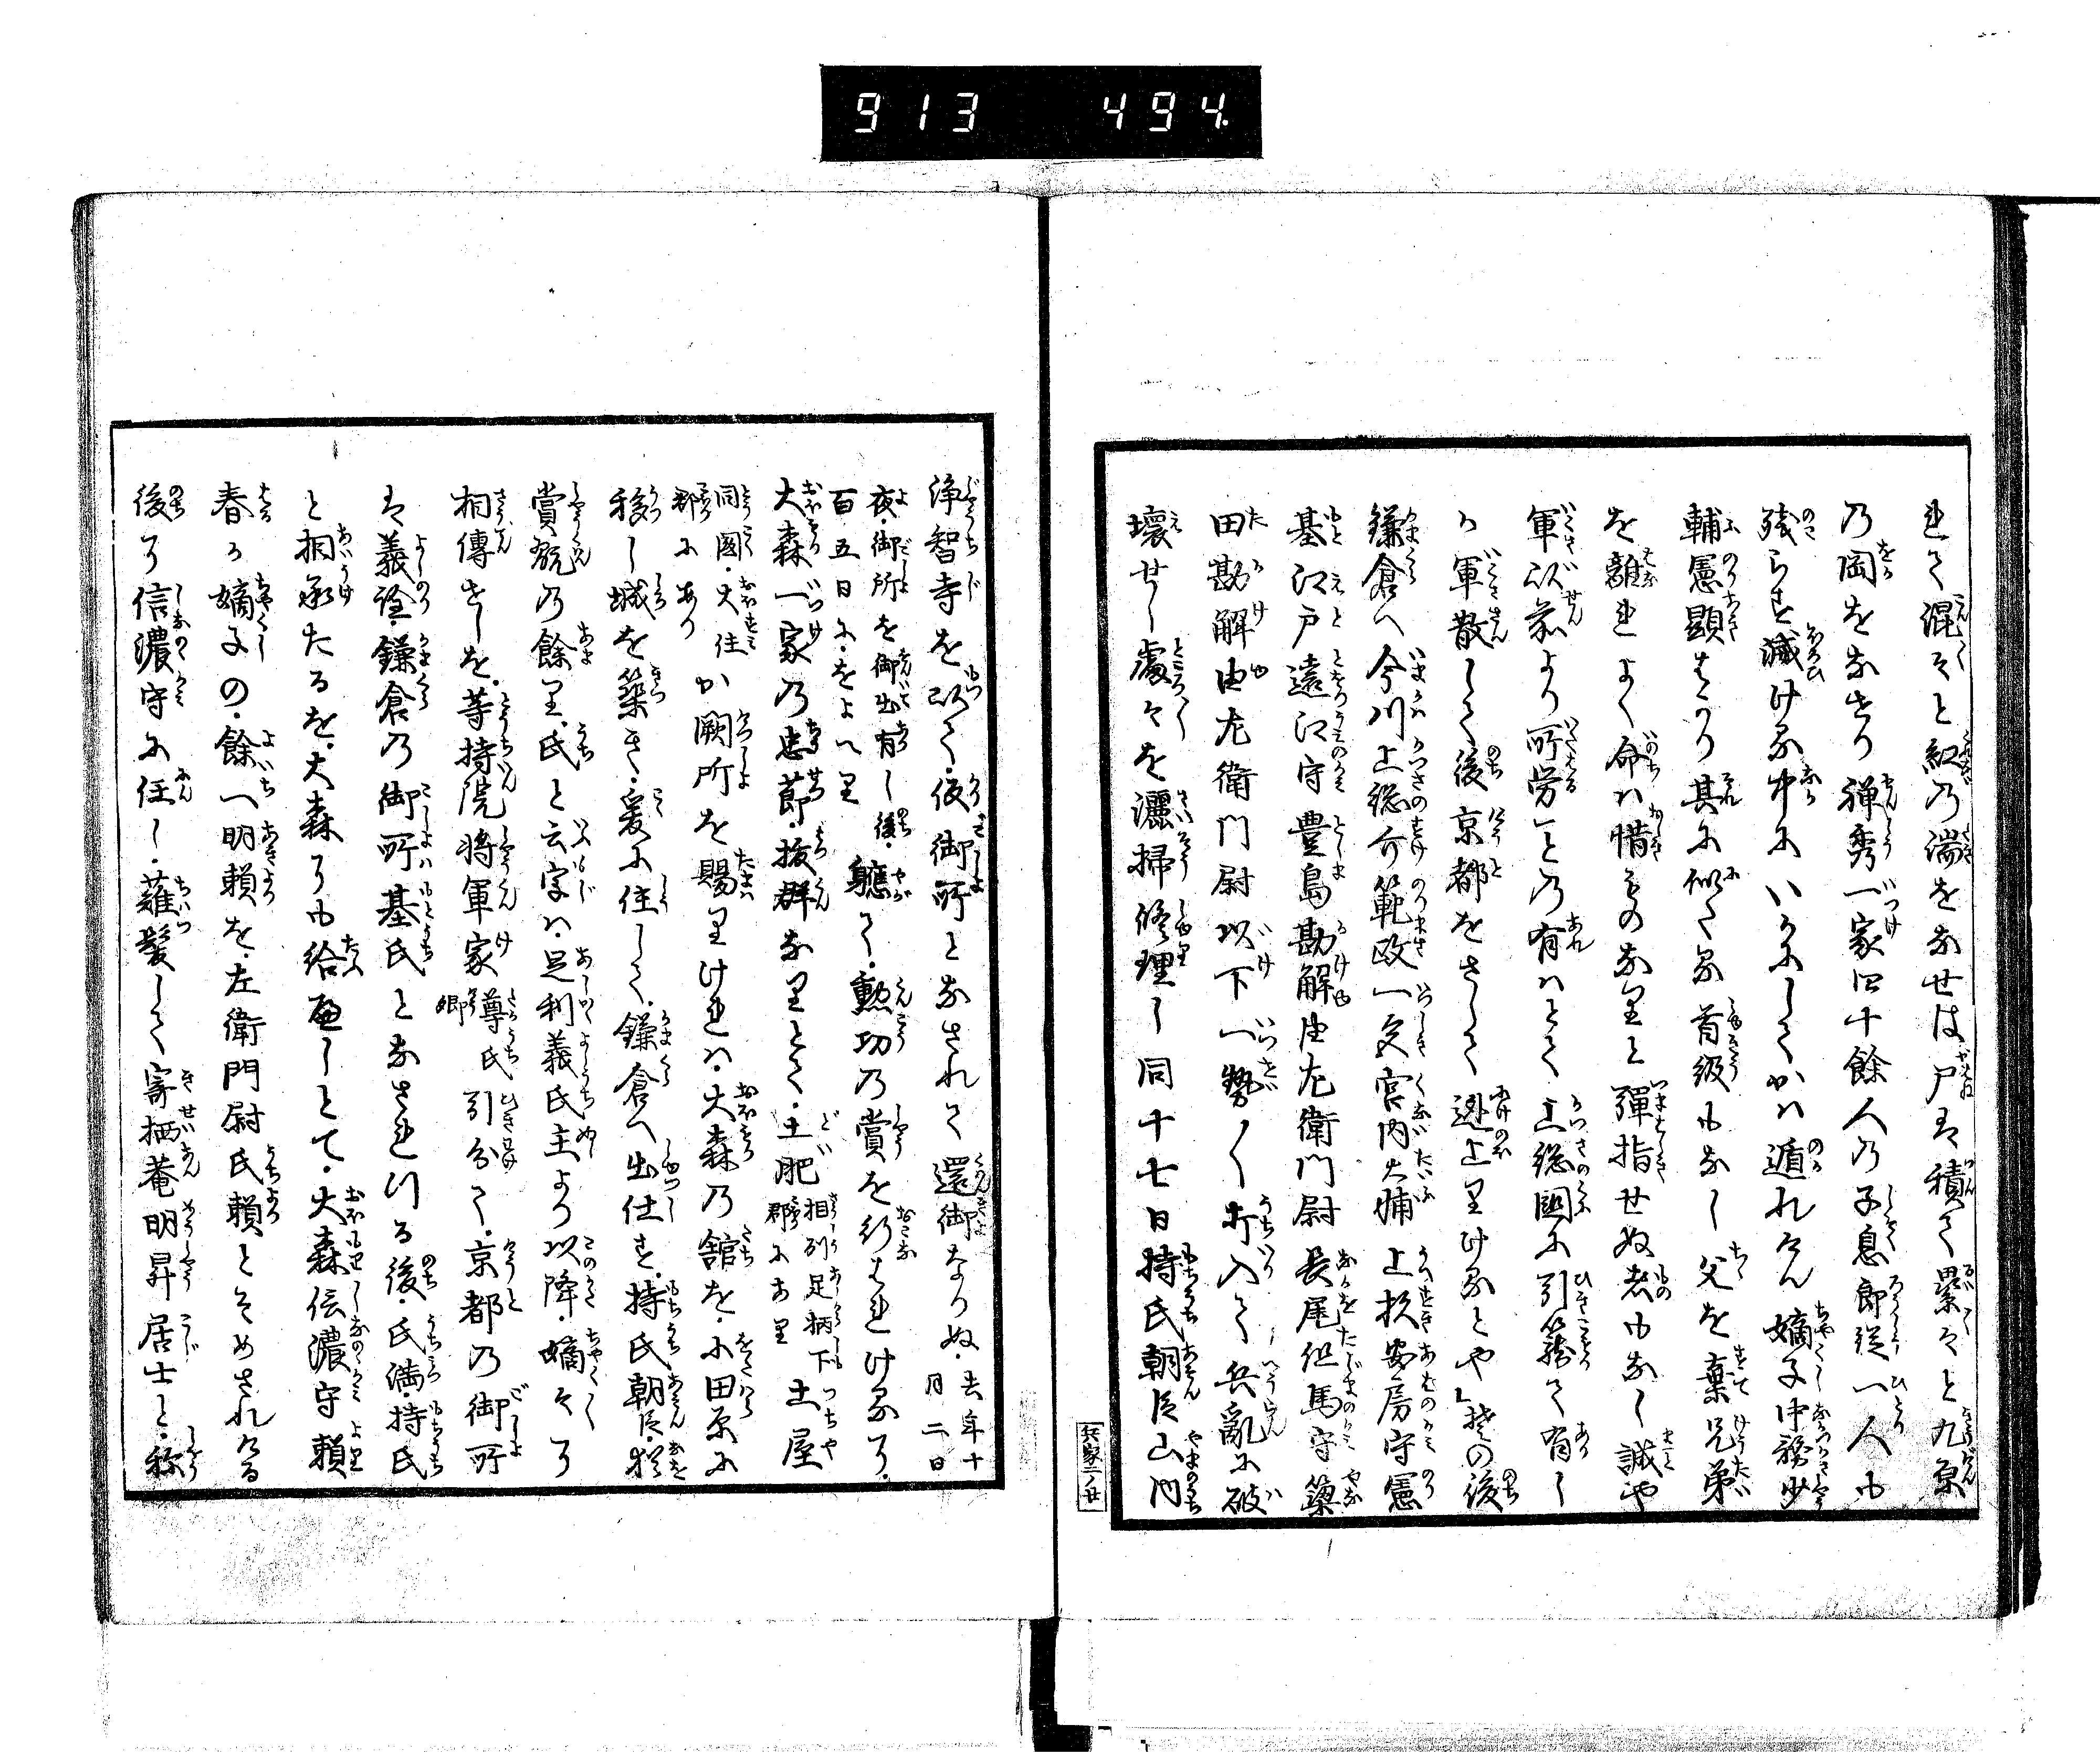 913 494
れて混々と紅乃湍をなせは尸は積て累々と九原
乃岡をなせり禅秀一家四十餘人乃子息郎従一人も
残らす滅ける中にいかにしてかは遁れけん嫡子中務少
輔憲顕はかり其に似たる首級もなし父を棄兄弟
を離れよく命は惜きものなりと彈指せぬ者もなし誠や
軍以前より所労との有はとて上総國に引籠て有し
か軍散して後京都をさして逃上りけるとや其の後
鎌倉へ今川上総介範政一色宮内大輔上杦安房守憲
基江戸遠江守豊島勘解由左衛門尉長尾但馬守簗
田勘解由左衛門尉以下一勢〳〵打入て兵亂に破
壊せし處々を灑掃修理し同十七日持氏朝臣山内
浄智寺を以て假御所となされて還御なりぬ去年十月二日
夜御所を御出有し後百五日にをよへり軈て勲功乃賞を行はれけるに
大森一家乃忠莭抜群なりとて土肥相州足柄下郡にあり土屋
同國大住郡にありか闕所を賜りけれは大森乃舘を小田原に
移し城を築き爰に住して鎌倉へ出仕す持氏朝臣猶
賞翫乃餘り氏と云字は足利義氏主より以降嫡々に
相傳せしを等持院将軍家尊氏卿引分て京都乃御所
は義詮鎌倉乃御所は基氏となされける後氏満持氏
と相承たるを大森にも給へしとて大森信濃守頼
春か嫡子の餘一明頼を左衛門尉氏頼とそめされける
後に信濃守に任し薙髪して寄栖菴明昇居士と称